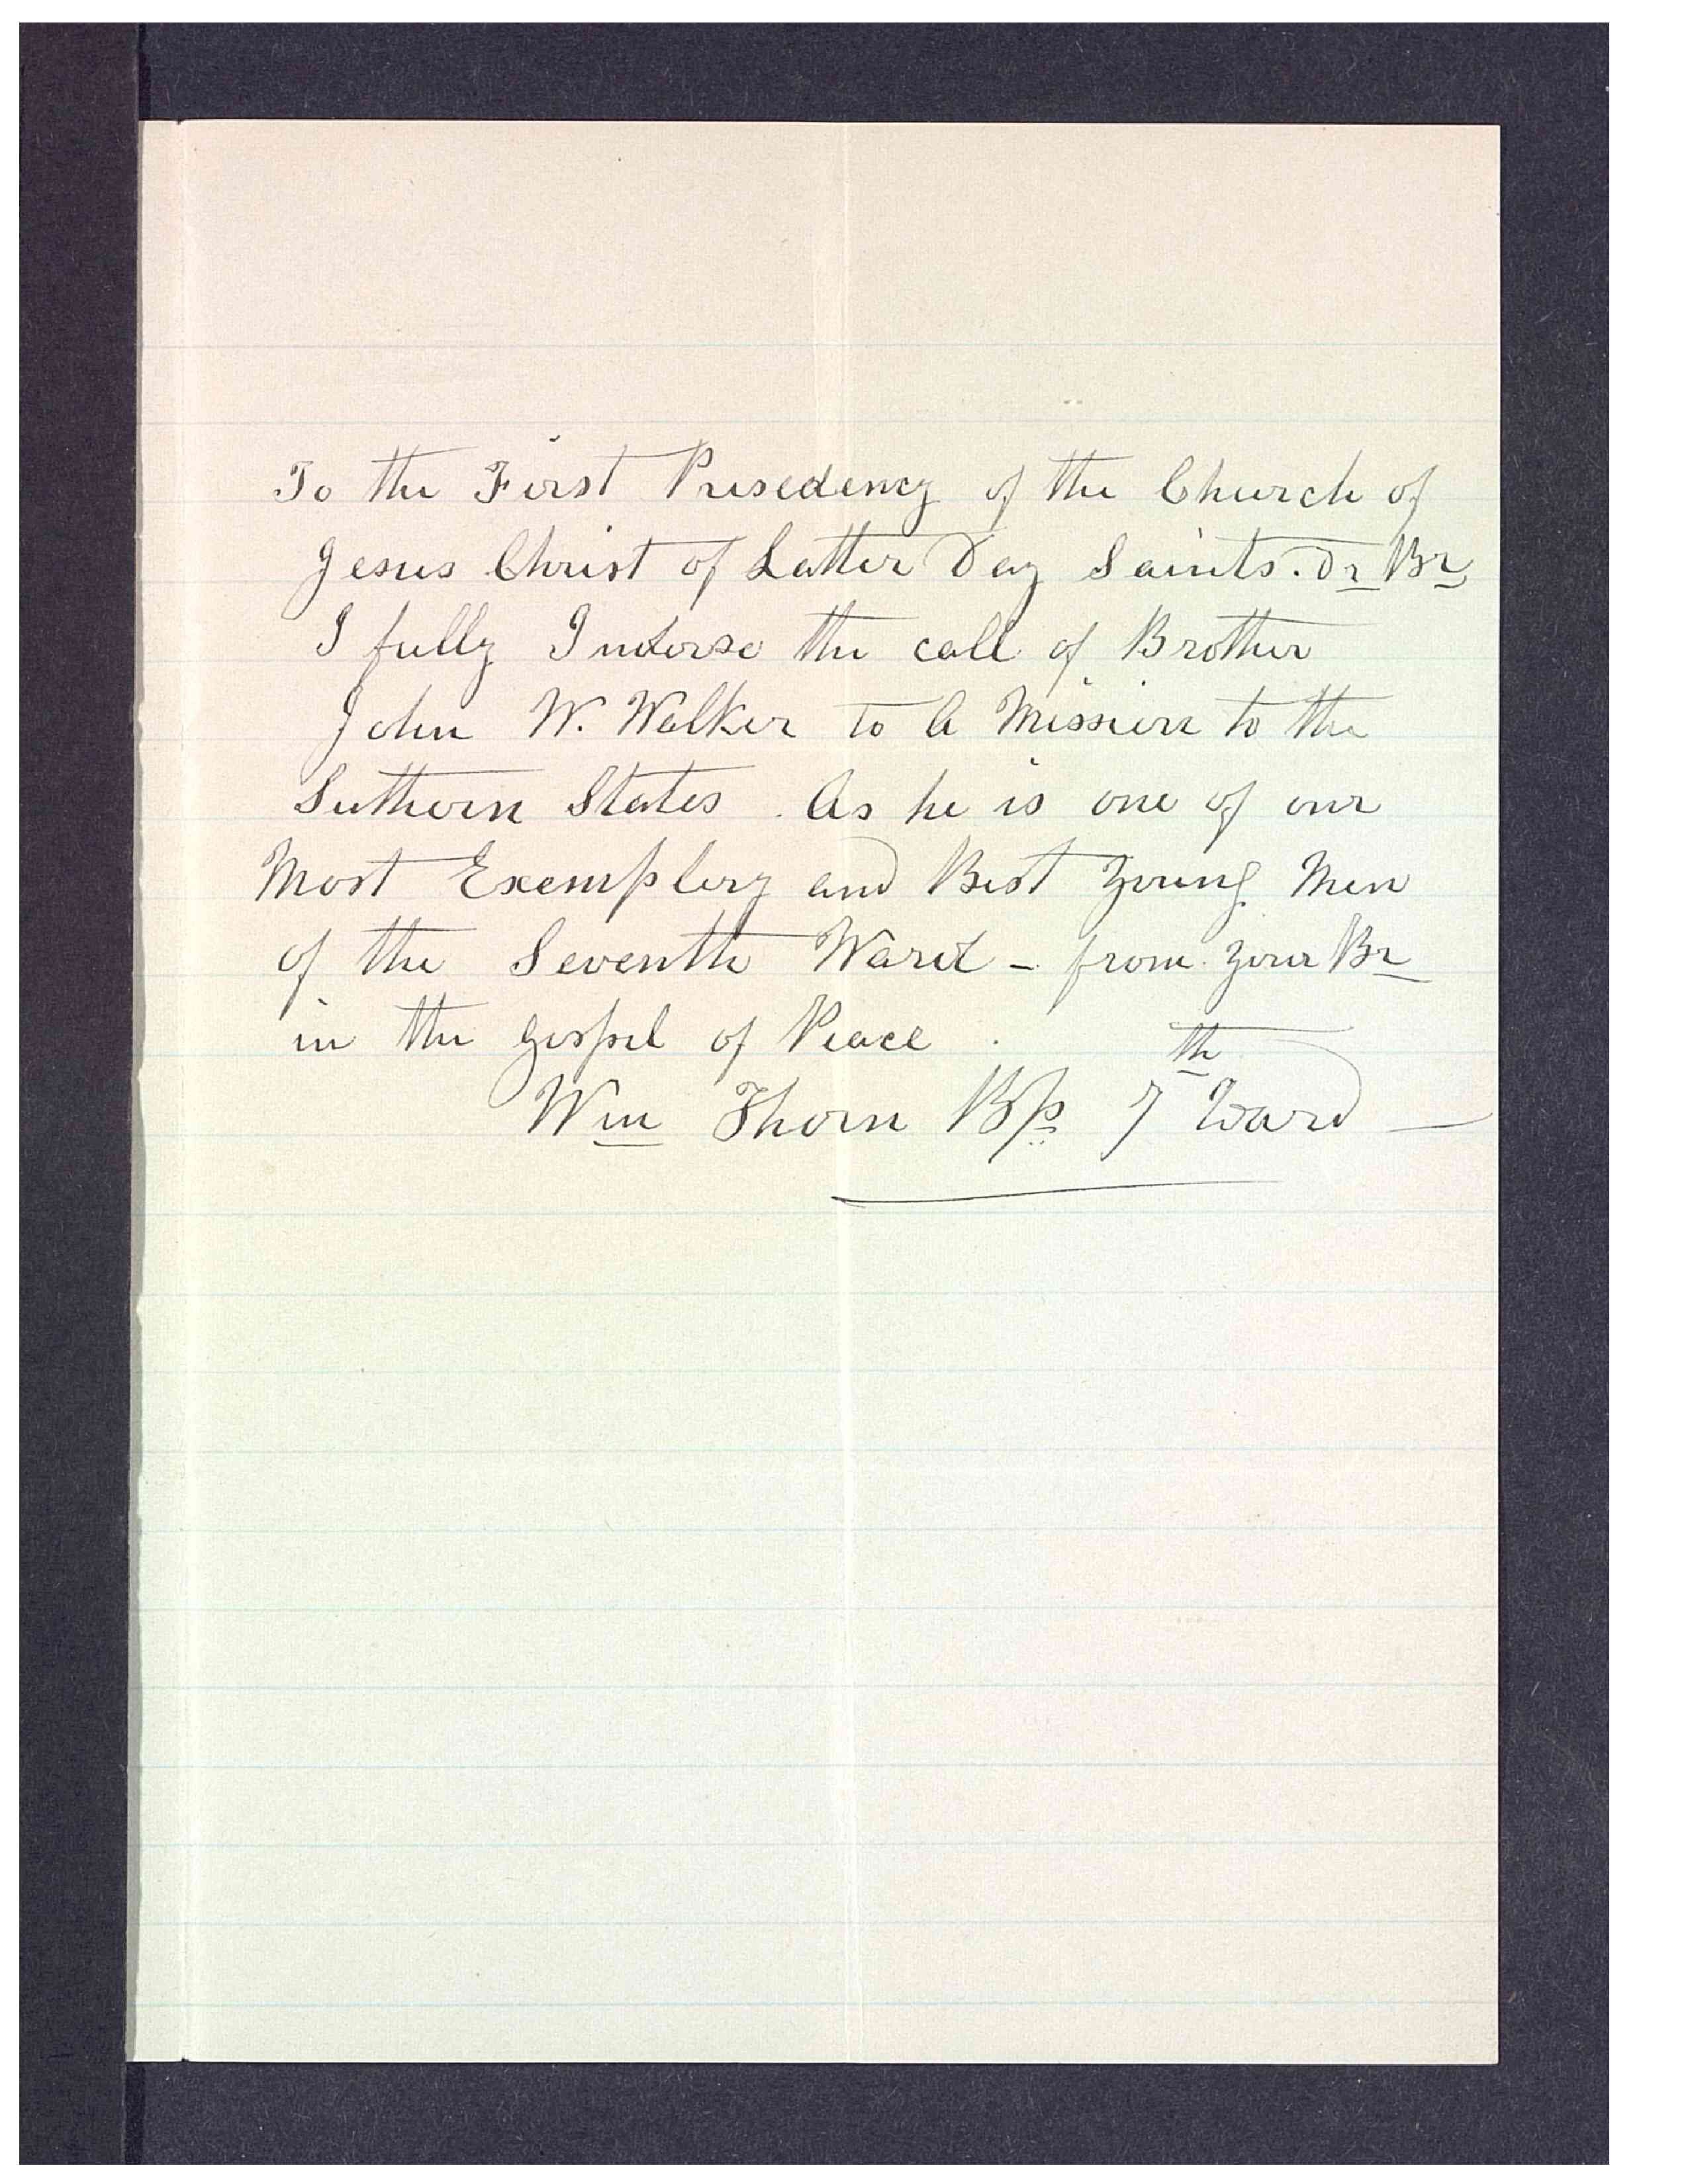 To the First Presedency of the Church of
Jesus Christ of Latter Day Saints. Dr Br
I fully Indorse the call of Brother
John W. Walker to A Mission to the
Suthern States. As he is one of our
Most Exemplery and Best young Men
of the Seventh Ward - from your Br
in the gospel of Peace.
Wm Thorn Bp 7th Ward -